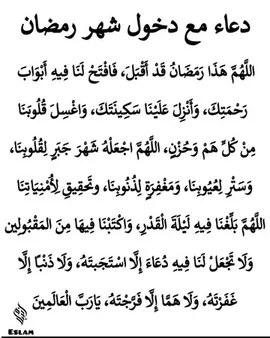 دعاء مع دخول شهر رمضان
اللَّهُمَّ هَذَا رَمَضَانُ قَدْ أَقْبَلَ، فَافْتَحْ لَنَا فِيهِ أَبْوَابَ
رَحْمَتِكَ، وَأَنْزِلْ عَلَيْنَا سَكِينَتَكَ، وَاغْسِلْ قُلُوبَنَا
مِنْ كُلِّ هَمٍّ وَحُزْنٍ، اللَّهُمَّ اجْعَلْهُ شَهْرَ جَبْرٍ لِقُلُوبِنَا،
وَسَتْرٍ لِعُيُوبِنَا، وَمَغْفِرَةٍ لِذُنُوبِنَا، وتَحقِيقٍ لِأُمْنِيَاتِنَا
اللَّهُمَّ بَلِّغْنَا فِيهِ لَيْلَةَ الْقَدْرِ، وَاكْتُبْنَا فِيهَا مِنَ المَقْبُولين
وَلَا تَجْعَلْ لَنَا فِيهِ دُعَاءً إِلَّا اسْتَجَبتَهُ، وَلَا ذَنْبًا إِلَّا
غَفَرْتَهُ، وَلَا هَمًّا إِلَّا فَرَّجْتَهُ، يَارَبَّ الْعَالَمِينَ
ESLAM